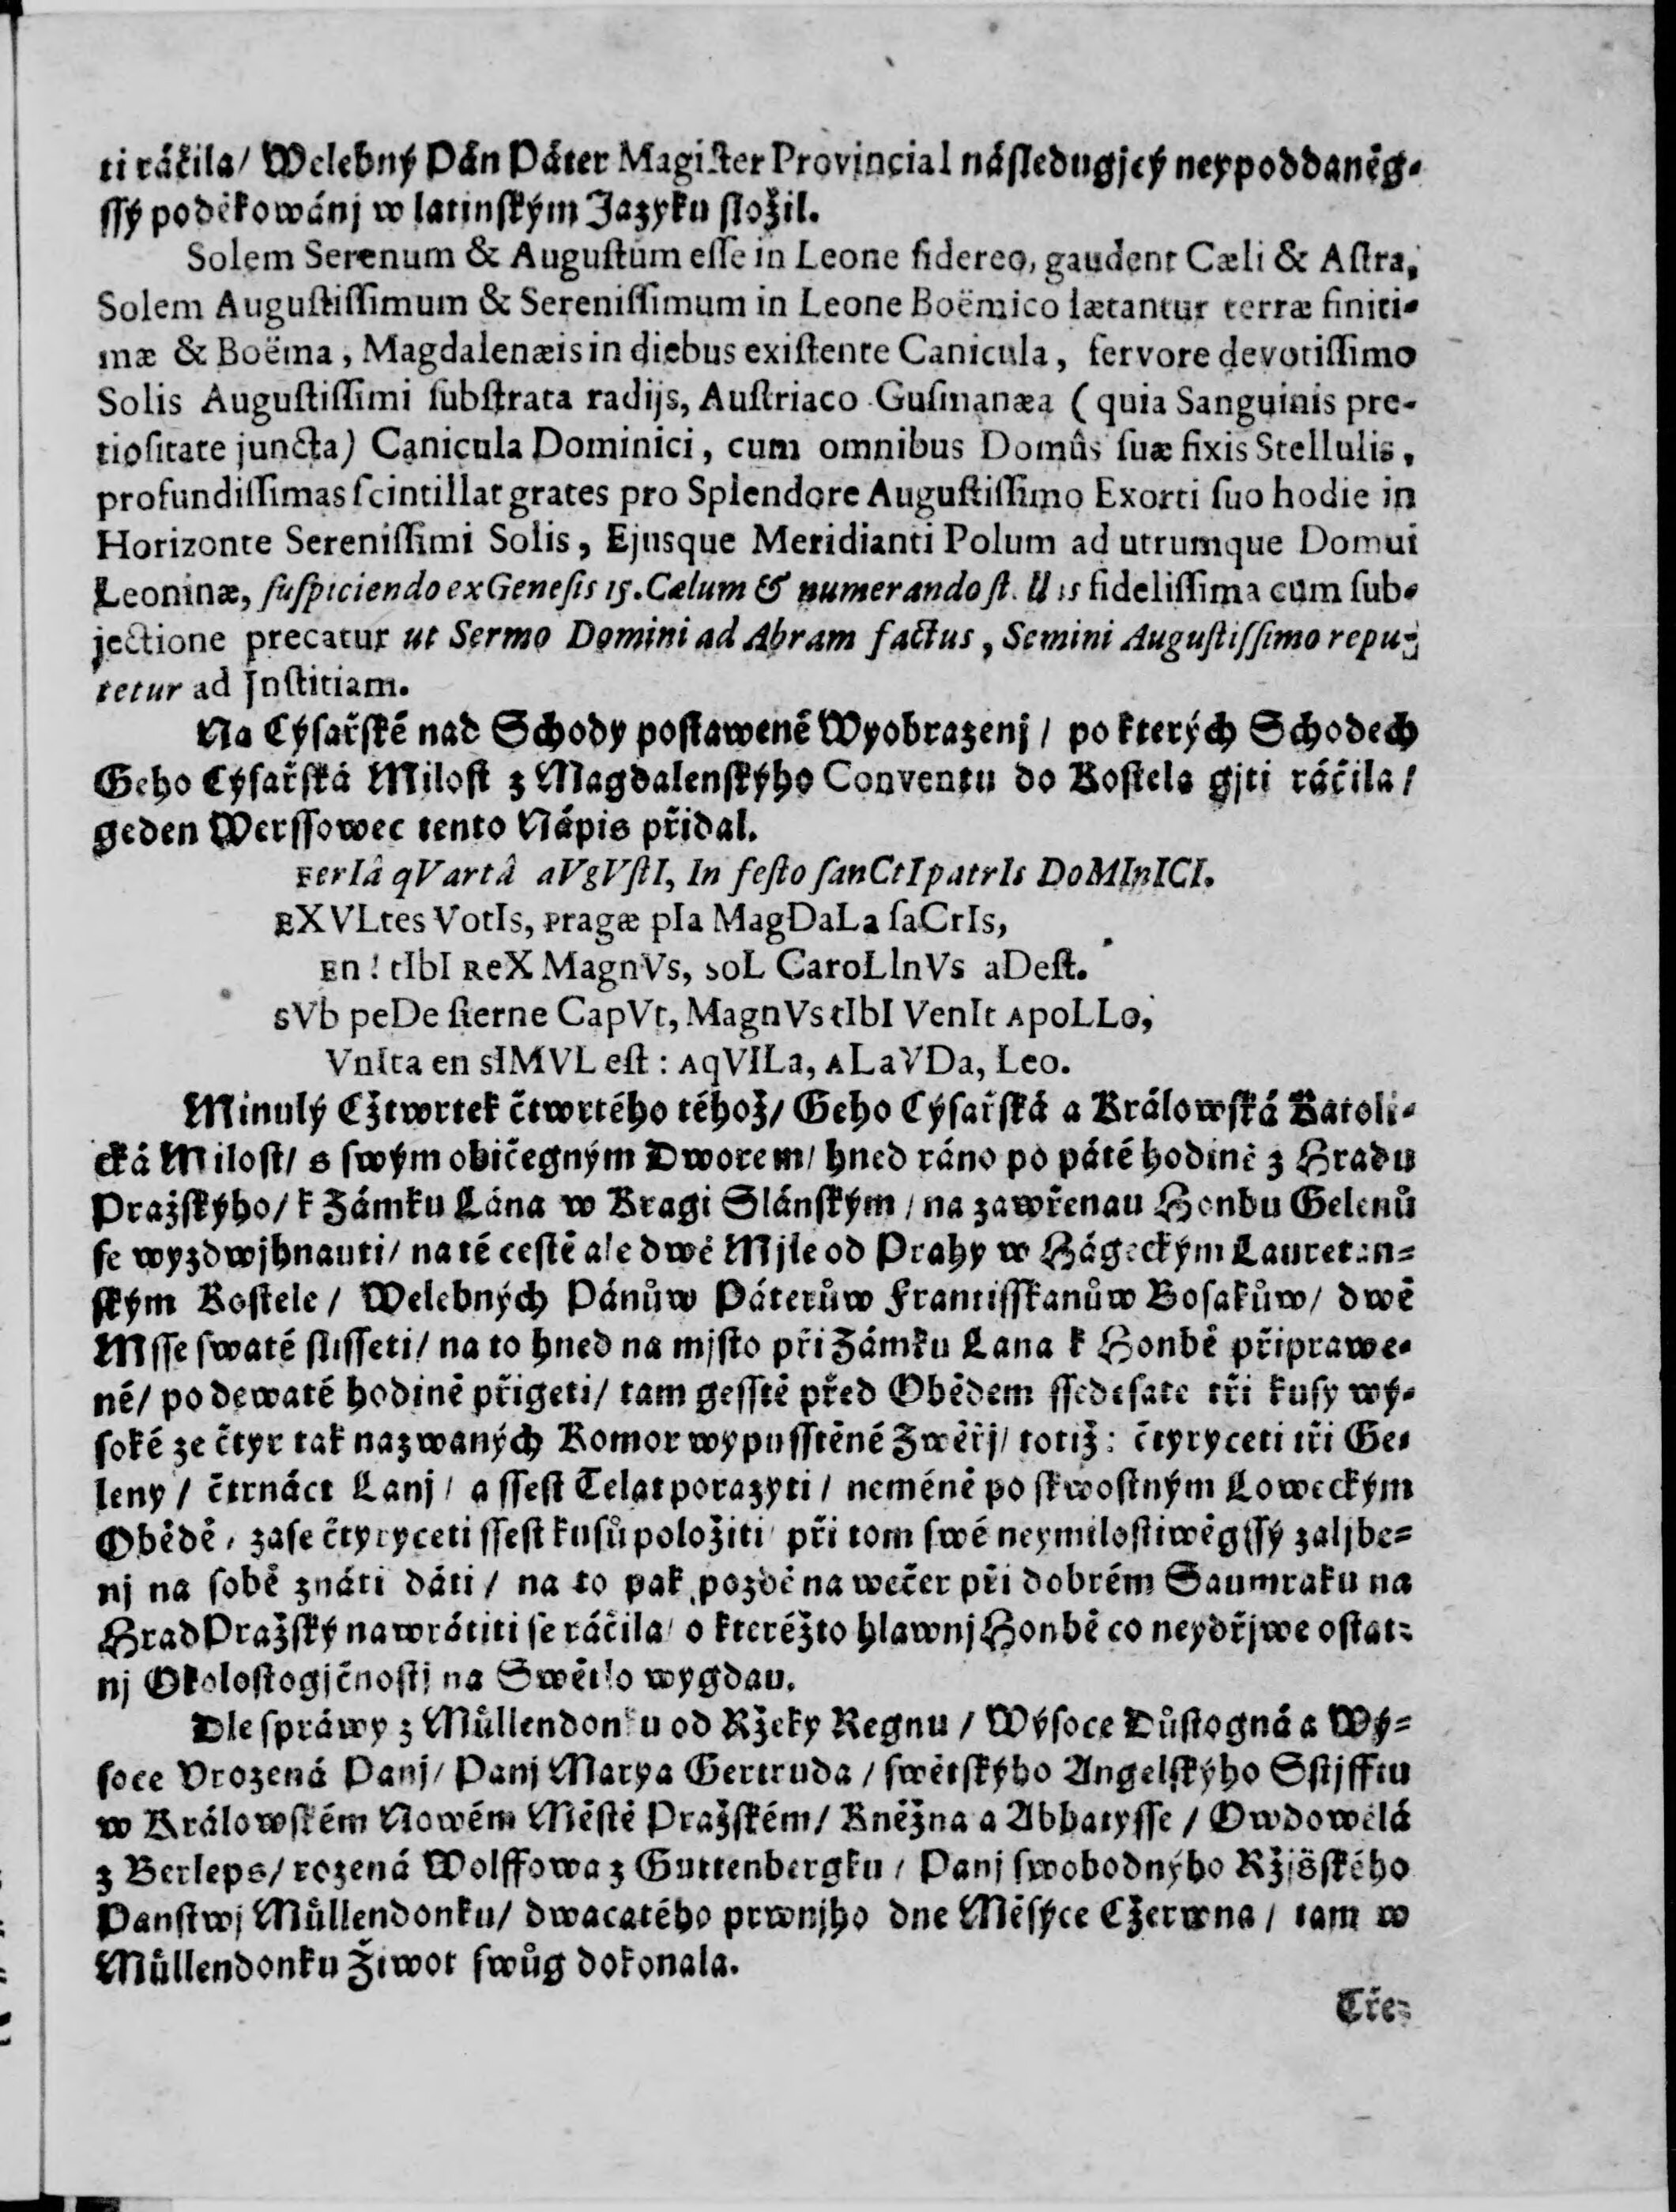 ti ráčila/ Welebný Pán Páter Magister Provincial následugjcý neypoddaněg-
ſſý poděkowánj w latinſkým Jazyku složil.
Solem Serenum & Auguſtum eſſe in Leone ſidereo, gaudent Cæli & Aſtra,
Solem Auguſtiſſimum & Sereniſſimum in Leone Boëmico lætantur terræ finiti-
mæ & Boëma, Magdalenæis in diebus exiſtente Canicula, fervore devotiſſimo
Solis Auguſtiſſimi ſubſtrata radijs, Auſtriaco Guſmanæa (quia Sanguinis pre-
tioſitate juncta) Canicula Dominici, cum omnibus Domûs ſuæ fixis Stellulis,
profundiſſimas ſcintillat grates pro Splendore Auguſtiſſimo Exorti ſuo hodie in
Horizonte Sereniſſimi Solis, Ejusque Meridianti Polum ad utrumque Domui
Leoninæ, ſuſpiciendo ex Geneſis 15. Cælum & numerando ſt. ll is fideliſſima cum ſub-
jectione precatur ut Sermo Domini ad Abram factus, Semini Auguſtiſſimo repu-
tetur ad Juſtitiam.
Na Cýſařſké nad Schody poſtawené Wyobrazenj / po kterých Schodech
Geho Cýſařſká Miloſt z Magdalenſkýho Conventu do Koſtela gjti ráčila /
geden Werſſowec tento Nápis přidal.
FerIâ qVartâ aVgVſtI, In feſto ſanCtI patrIs DoMInICI.
EXVLtes VotIs, Pragæ pIa MagDaLa ſaCrIs,
En! tIbI ReX MagnVs, soL CaroLInVs aDeſt.
sVb peDe ſterne CapVt, MagnVs tIbI VenIt ApoLLo,
VnIta en sIMVL eſt: AqVILa, ALaVDa, Leo.
Minulý Cžtwrtek čtwrtého téhož/ Geho Cýſařſká a Králowſká Katoli-
cká Miloſt/ s ſwým običegným Dworem/ hned ráno po páté hodině z Hradu
Pražſkýho/ k Zámku Lána w Kragi Slánſkým / na zawřenau Honbu Gelenů
ſe wyzdwjhnauti/ na té ceſtě ale dwě Mjle od Prahy w Hágeckým Lauretan-
ſkým Koſtele / Welebných Pánůw Páterůw Frantiſſkanůw Boſakůw/ dwě
Mſſe ſwaté sliſſeti/ na to hned na mjſto při Zámku Lana k Honbě připrawe-
né/ po dewaté hodině přigeti/ tam geſſtě před Obědem ſſedeſate tři kuſy wý-
ſoké ze čtyr tak nazwaných Komor wypuſſtěné Zwěřj/ totiž: čtyryceti tři Ge-
leny / čtrnáct Lanj / a ſſeſt Telat porazyti / neméně po ſkwoſtným Loweckým
Obědě / zaſe čtyryceti ſſeſt kuſů položiti / při tom ſwé neymiloſtiwěgſſý zaljbe-
nj na ſobě znáti dáti / na to pak pozdě na wečer při dobrém Saumraku na
Hrad Pražſký nawrátiti ſe ráčila/ o kteréžto hlawnj Honbě co neydřjwe oſtat-
nj Okoloſtogjčnoſtj na Swětlo wygdau.
Dle ſpráwy z Müllendonku od Ržeky Regnu / Wýſoce Důſtogná a Wý-
ſoce Vrozená Panj/ Panj Marya Gertruda / ſwětſkýho Angelſkýho Sſtjfftu
w Králowſkém Nowém Měſtě Pražſkém/ Kněžna a Abbatyſſe / Owdowělá
z Berleps/ rozená Wolffowa z Guttenbergku / Panj ſwobodnýho Ržjſſkého
Panſtwj Müllendonku/ dwacatého prwnjho dne Měſýce Cžerwna / tam w
Müllendonku Žiwot ſwůg dokonala.
Tře-